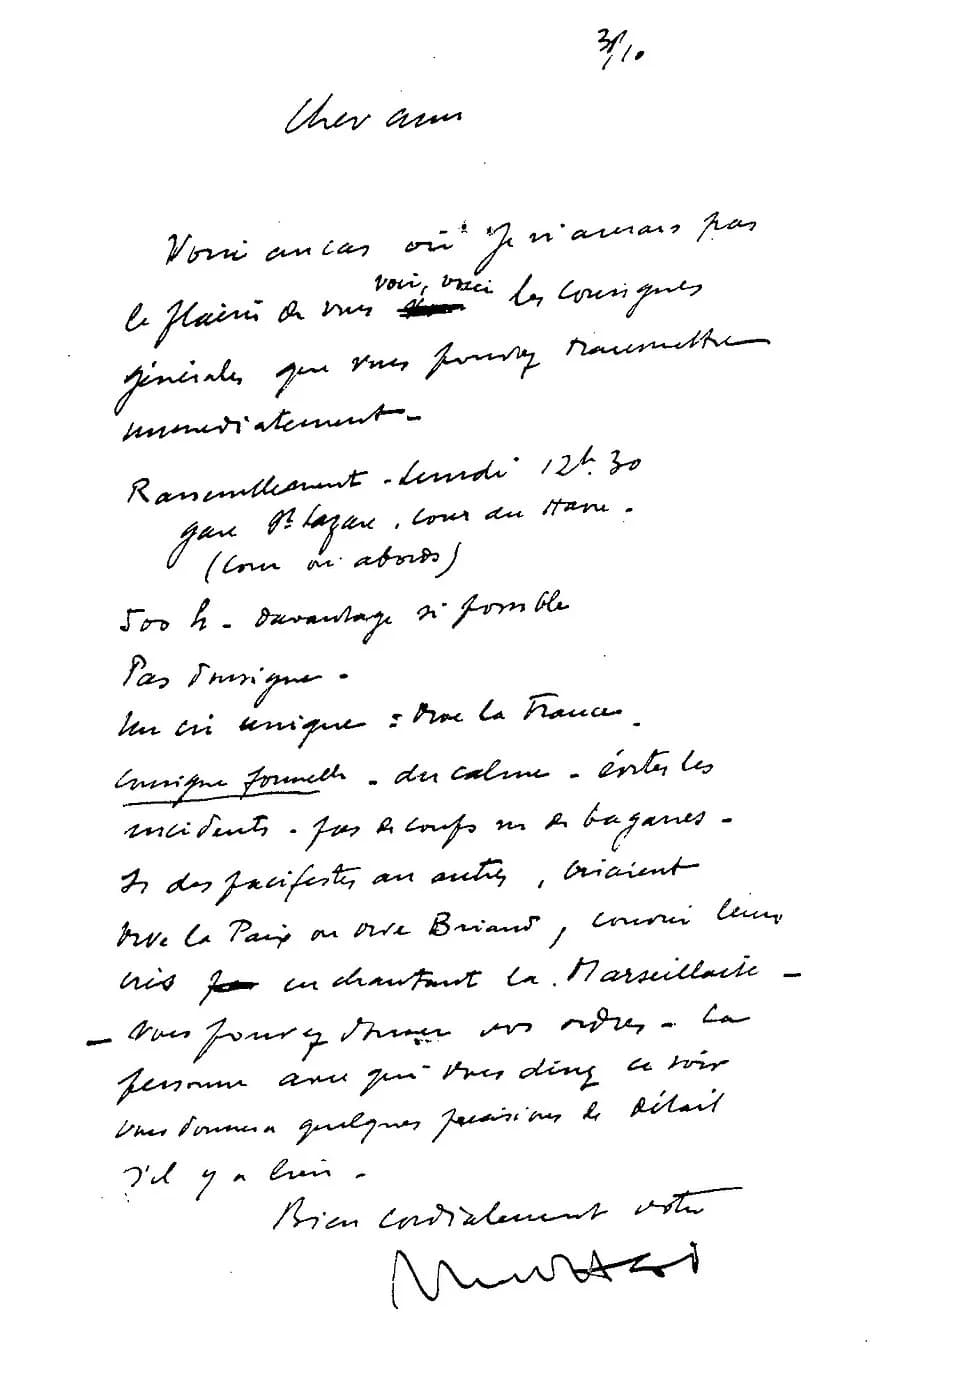 31/10
Cher ami
Voici au cas où je n'aurais pas
le plaisir de vous voir, voici les consignes
générales que vous pouvez transmettre
immédiatement -
Rassemblement - Lundi 12h.30
gare St Lazare, Cour du Havre -
(Cour ou abords)
500 h - davantage si possible
Pas d'insigne -
Un cri unique : Vive la France.
Consigne formelle - du calme - éviter les
incidents - pas de coups ni de bagarres -
Si des pacifistes ou autres, criaient
Vive la Paix ou Vive Briand, couvrir leurs
cris en chantant la Marseillaise -
- Vous pouvez donner vos ordres - La
personne avec qui vous dinez ce soir
vous donnera quelques précisions de détail
s'il y a lieu -
Bien cordialement votre